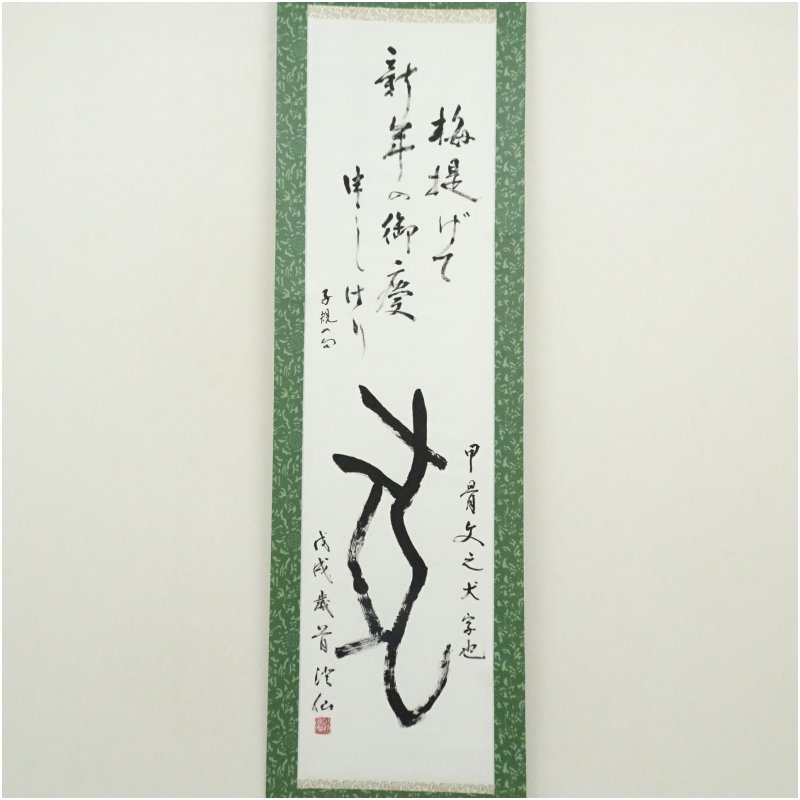 梅提げて
新年の御慶
申しけり
子規の句
甲骨文之犬字也
戊戌歳首 澄仙